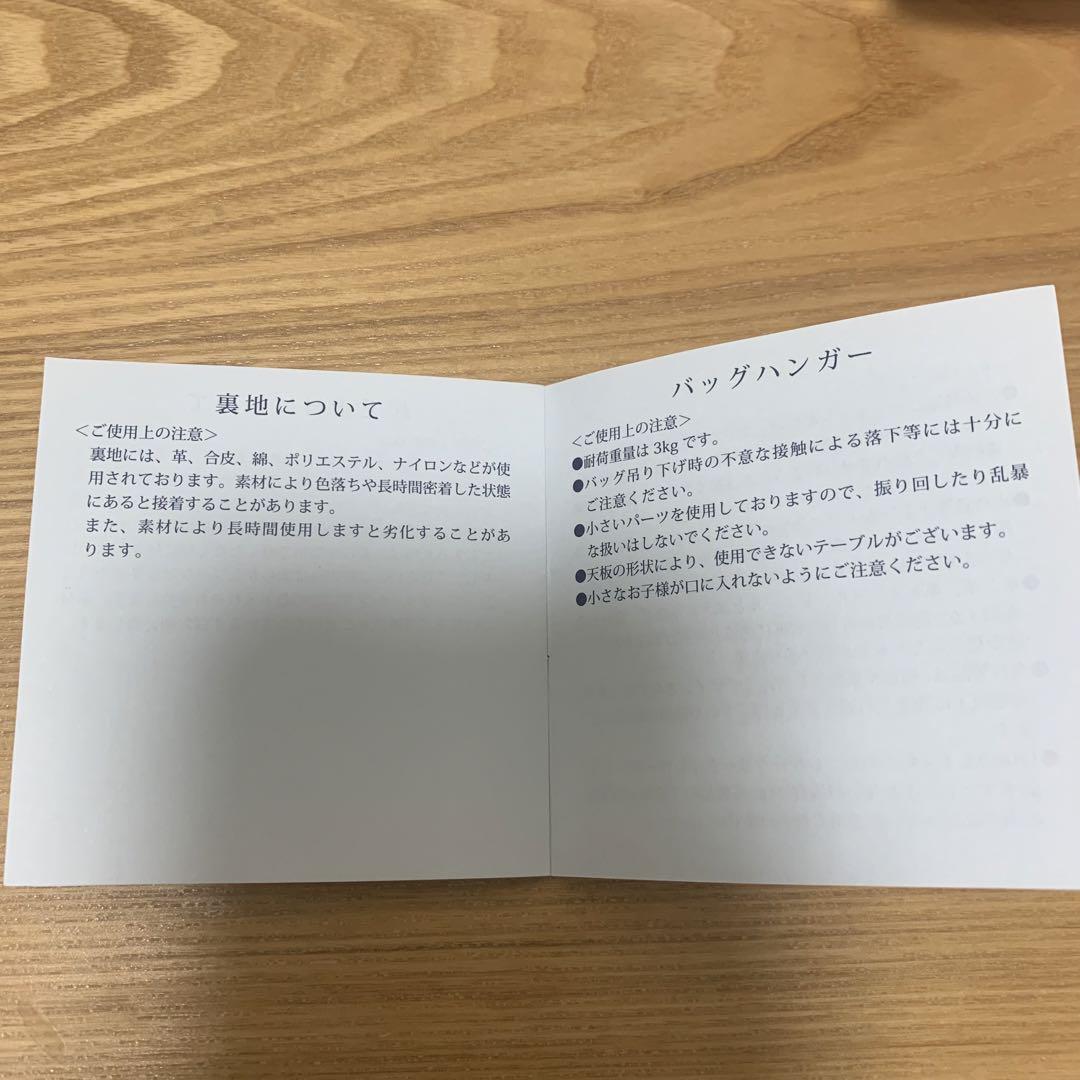 裏地について
＜ご使用上の注意＞
裏地には、革、合皮、綿、ポリエステル、ナイロンなどが使
用されております。素材により色落ちや長時間密着した状態
にあると接着することがあります。
また、素材により長時間使用しますと劣化することがあ
ります。
バッグハンガー
＜ご使用上の注意＞
●耐荷重量は3kgです。
●バッグ吊り下げ時の不意な接触による落下等には十分に
ご注意ください。
●小さいパーツを使用しておりますので、振り回したり乱暴
な扱いはしないでください。
●天板の形状により、使用できないテーブルがございます。
●小さなお子様が口に入れないようにご注意ください。